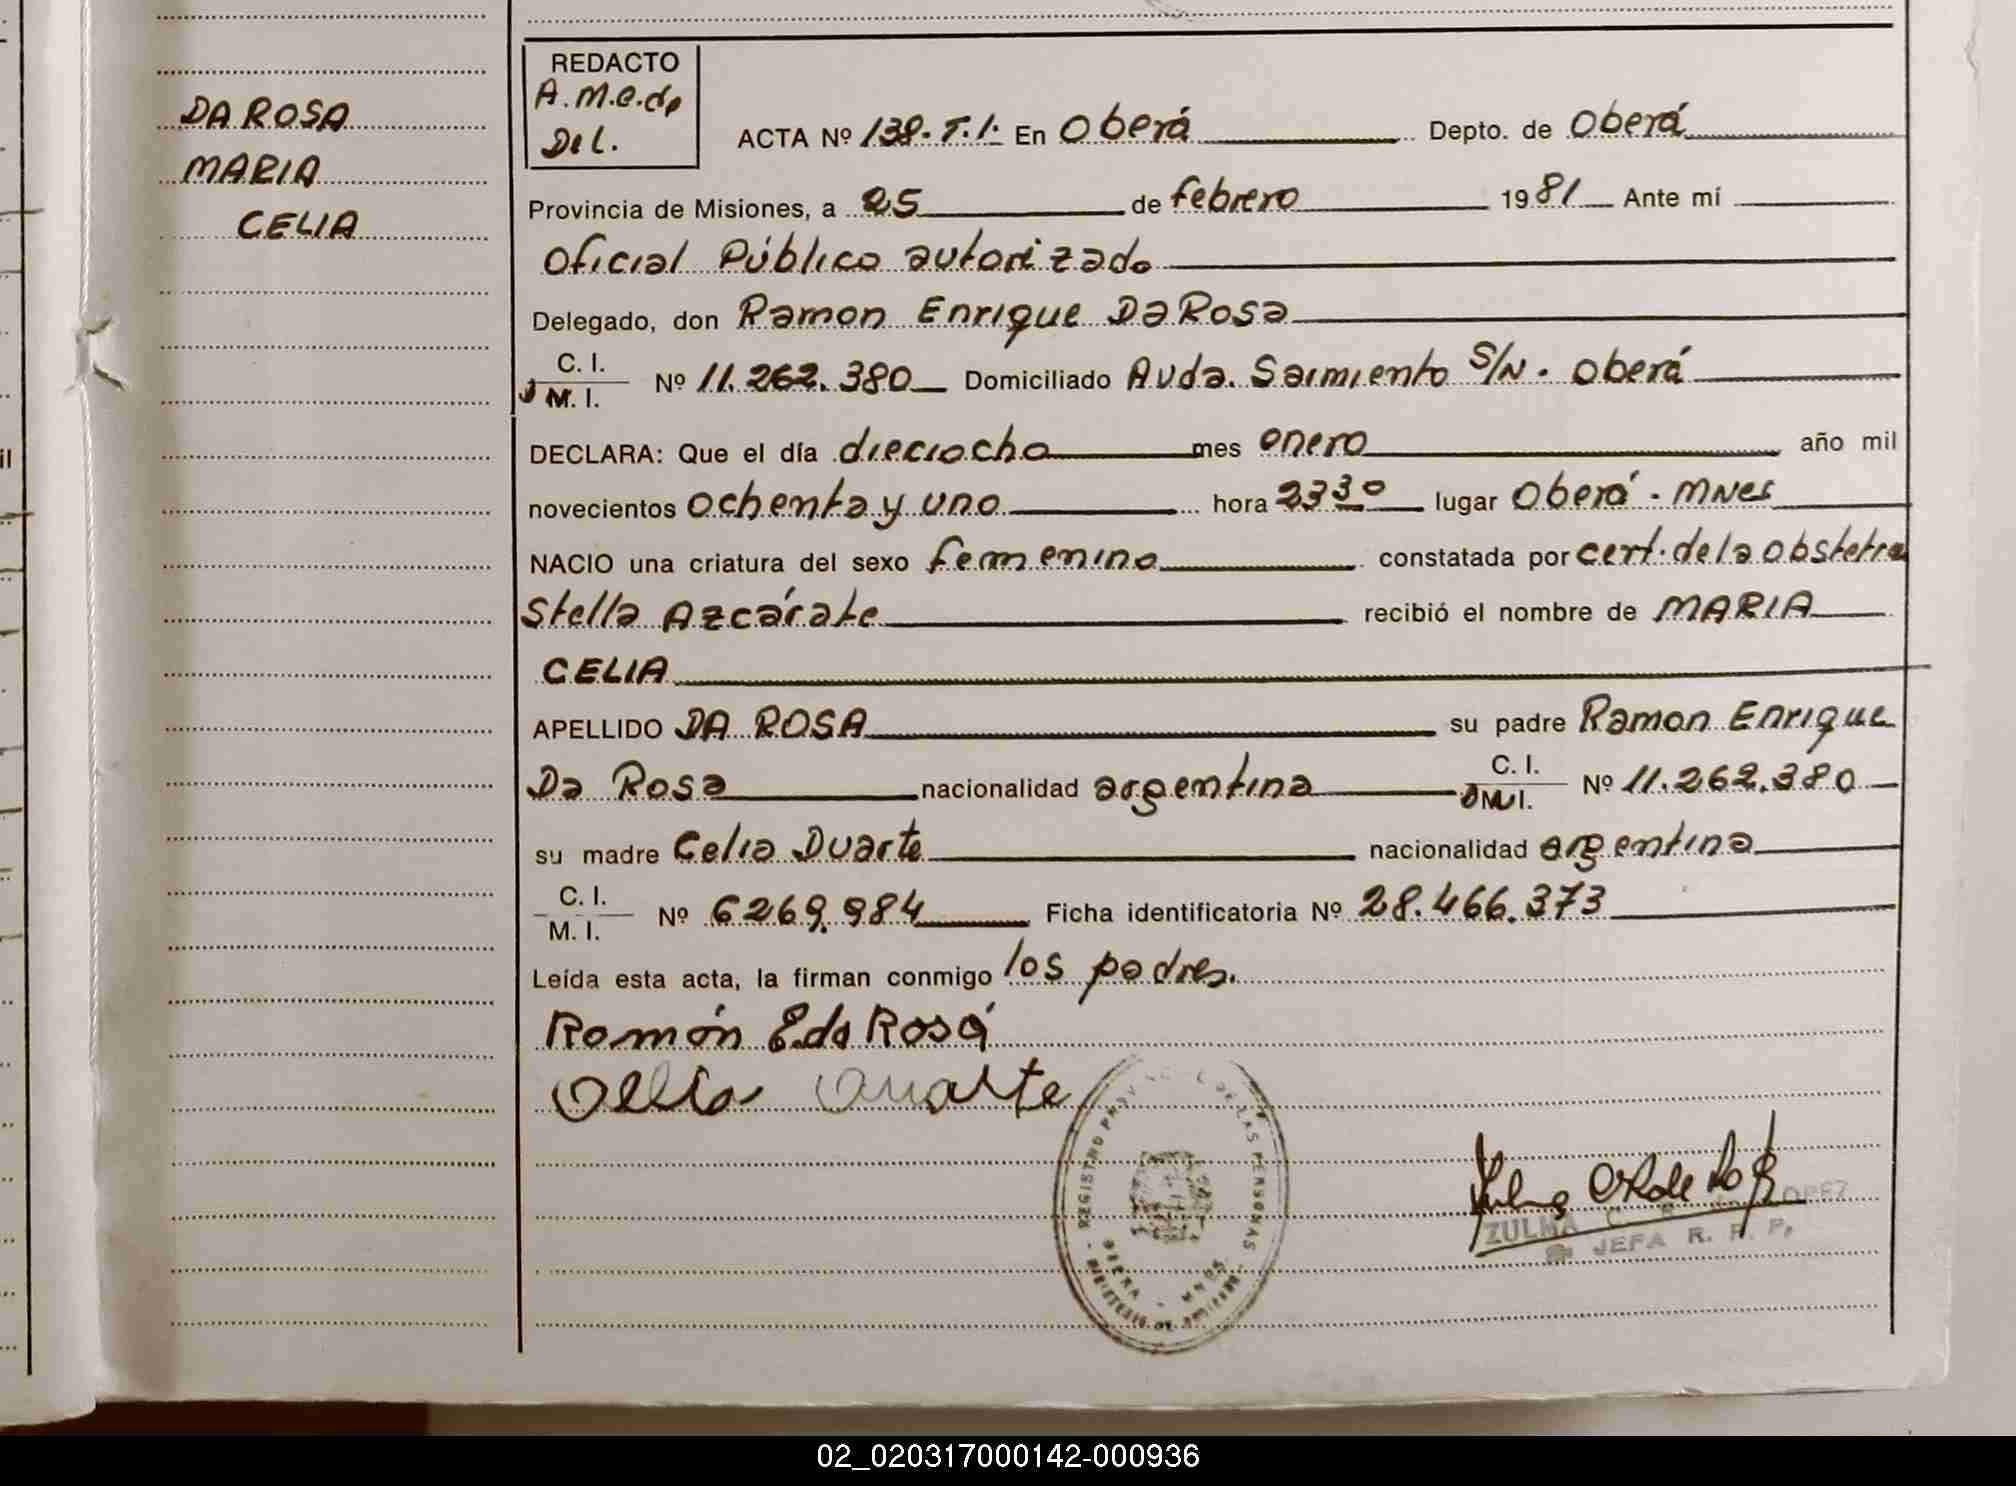 DA ROSA
MARIA
CELIA
REDACTO
A.M.C.de
Del.
ACTA Nº 138-T.I. En Oberá Depto. de Oberá
Provincia de Misiones, a 25 de febrero 1981 Ante mí
Oficial Público autorizado
Delegado, don Ramon Enrique Da Rosa
C. I.
M. I. Nº 11.262.380 Domiciliado Avda. Sarmiento S/N. Oberá
DECLARA: Que el día dieciocho mes enero año mil
novecientos ochenta y uno hora 23 30 lugar Oberá - Mnes
NACIO una criatura del sexo femenino constatada por cert. de la obstetra
Stella Azcárate recibió el nombre de MARIA
CELIA
APELLIDO DA ROSA su padre Ramon Enrique
Da Rosa nacionalidad argentina C. I. M. I. Nº 11.262.380
su madre Celia Duarte nacionalidad argentina
C. I.
M. I. Nº 6269.984 Ficha identificatoria Nº 28.466.373
Leída esta acta, la firman conmigo los padres.
Ramón E. da Rosa
Celia Duarte
REGISTRO PROV. DE LAS PERSONAS
OBERA - MNES
ZULMA C. R. de LOPEZ
JEFA R. P. P.
02_020317000142-000936